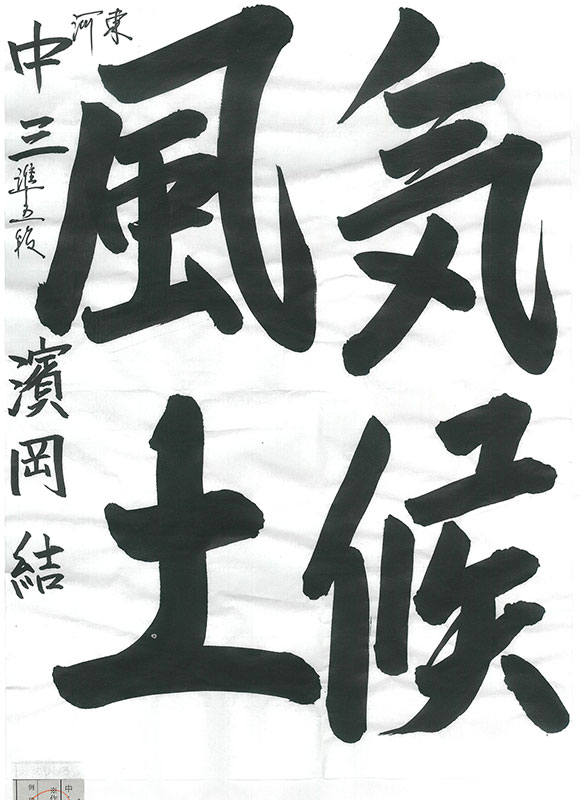 気候
風土
河東
中三準五段 濱岡結